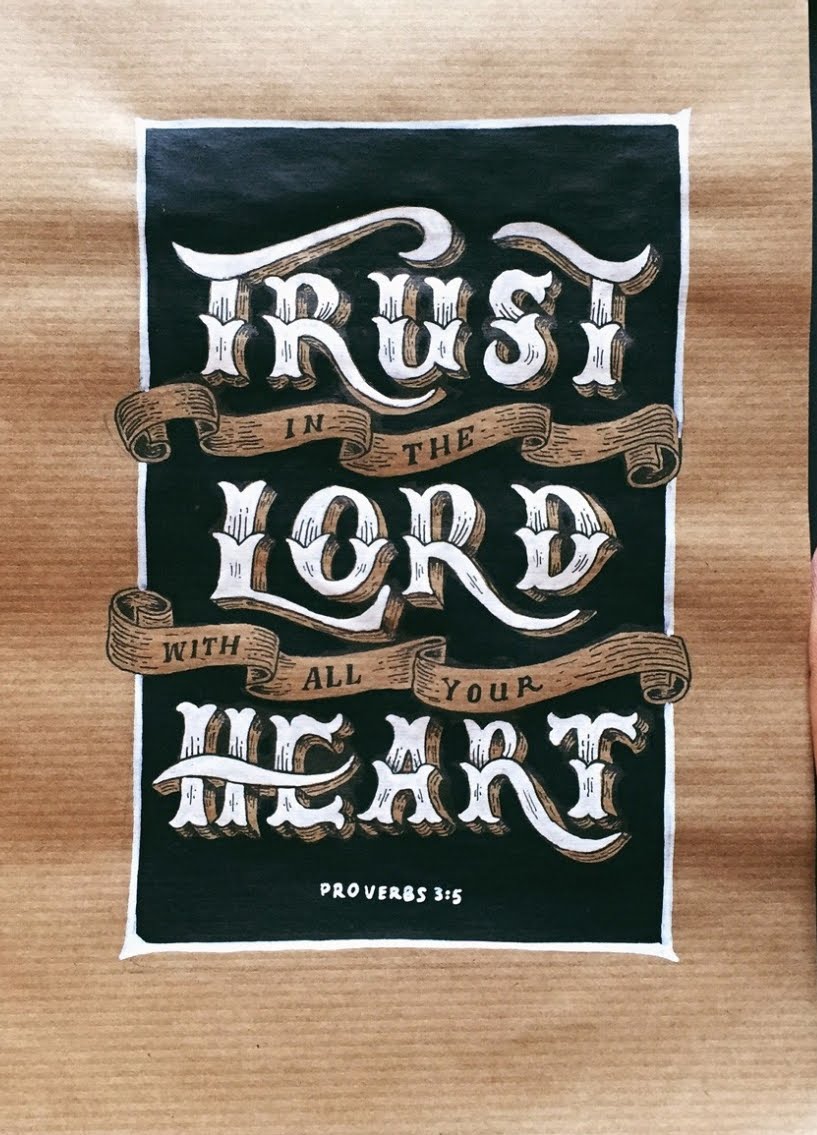 TRUST
IN THE
LORD
WITH ALL YOUR
HEART
PROVERBS 3:5